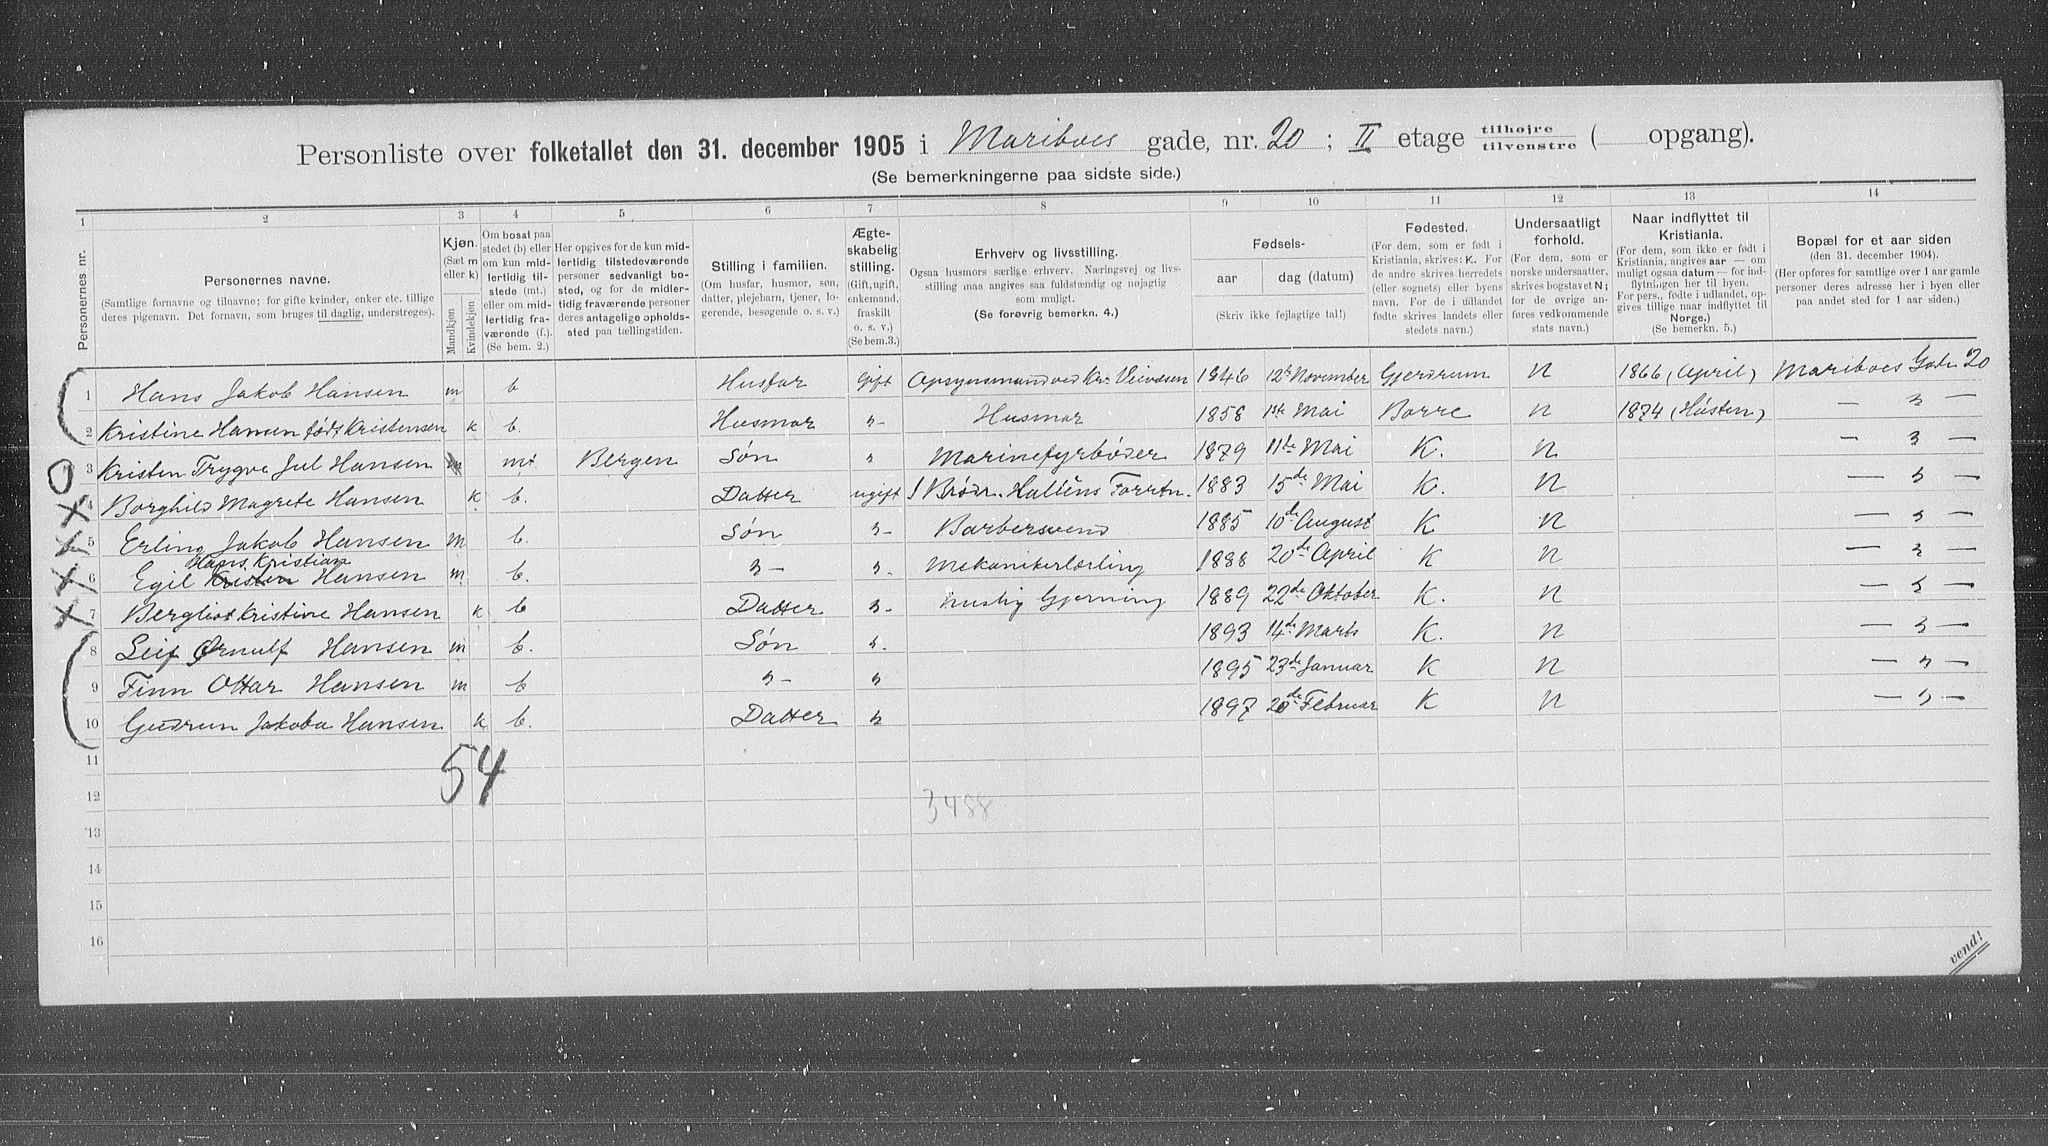 Personliste over folketallet den 31. december 1905 i Mariboes gade, nr. 20 ; II etage tilhøjre tilvenstre ( opgang).
(Se bemerkningerne paa sidste side.)
1 2 3 4 5 6 7 8 9 10 11 12 13 14
Personernes nr.
Personernes navne.
(Samtlige fornavne og tilnavne; for gifte kvinder, enker etc. tillige
deres pigenavn. Det fornavn, som bruges til daglig, understreges).
Kjøn.
(Sæt m
eller k)
Mandkjøn
Kvindekjøn
Om bosat paa
stedet (b) eller
om kun mid-
lertidig til-
stede (mt.)
eller om mid-
lertidig fra-
værende (f.).
(Se bem. 2.)
Her opgives for de kun mid-
lertidig tilstedeværende
personer sedvanligt bo-
sted, og for de midler-
tidig fraværende personer
deres antagelige opholds-
sted paa tællingstiden.
Stilling i familien.
(Om husfar, husmor, søn,
datter, plejebarn, tjener, lo-
gerende, besøgende o. s. v.)
Ægte-
skabelig
stilling.
(Gift, ugift,
enkemand,
fraskilt
o. s. v.)
(Se bem.3.)
Erhverv og livsstilling.
Ogsaa husmors særlige erhverv. Næringsvej og livs-
stilling maa angives saa fuldstændig og nøjagtig
som muligt.
(Se forøvrig bemerkn. 4.)
Fødsels-
aar dag (datum)
(Skriv ikke fejlagtige tal!)
Fødested.
(For dem, som er født i
Kristiania, skrives: K. For
de andre skrives herredets
(eller sognets) eller byens
navn. For de i udlandet
fødte skrives landets eller
stedets navn.)
Undersaatligt
forhold.
(For dem, som er
norske undersaatter,
skrives bogstavet N;
for de øvrige an-
føres vedkommende
stats navn.)
Naar indflyttet til
Kristiania.
(For dem, som ikke er født i
Kristiania, angives aar — om
muligt ogsaa datum — for ind-
flytningen her til byen.
For pers., fødte i udlandet, op-
gives tillige naar indflyttet til
Norge.)
(Se bemerkn. 5.)
Bopæl for et aar siden
(den 31. december 1904).
(Her opføres for samtlige over 1 aar gamle
personer deres adresse her i byen eller
paa andet sted for 1 aar siden.)
1 Hans Jakob Hansen m b Husfar Gift Opsynsmand ved Kr. Veivæsen 1846 12te November Gjerdrum N 1866 (April) Mariboes Gade 20
2 Kristine Hansen født Kristensen k b. Husmor "- Husmor 1858 1ste Mai Borre N 1874 (Høsten) — " —
3 Kristen Trygve Jul Hansen m mt Bergen Søn " Marinefyrbøder 1879 11te Mai K. N — " —
4 Borghild Magrete Hansen k b. Datter ugift I Brødr. Halléns Forrtn. 1883 15de Mai K. N — " —
5 Erling Jakob Hansen m b. Søn "- Barbersvend 1885 10de August K N — " —
Hans Kristian
6 Egil Kristen Hansen m b. "- ". Mekanikerlærling 1888 20de April K N — " —
7 Bergliot Kristine Hansen k b Datter "- huslig Gjerning 1889 22de Oktober K. N — " —
8 Leif Ørnulf Hansen m b. Søn ". 1893 14de Marts K. N — " —
9 Finn Ottar Hansen m b "- " 1895 23de Januar K N — " —
10 Gudrun Jakoba Hansen k b. Datter " 1897 20de Februar K N — " —
54
11
12 3488
13
14
15
16
vend!